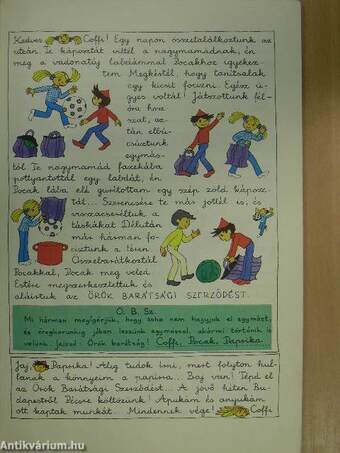 Kedves Coffi! Egy napon összetalálkoztunk az
utcán. Te káposztát vittél a nagymamádnak, én
meg a vadonatúj labdámmal Pocakhoz igyekez-
tem. Megkértél, hogy tanítsalak
egy kicsit focizni. Egész ü-
gyes voltál! Játszottunk fél-
óra hosz-
szat, az-
tán elbú-
csúztunk
egymás-
tól. Te nagymamád fazekába
pottyantottál egy labdát, én
Pocak lába elé gurítottam egy szép zöld káposz-
tát... Szerencsére te már jöttél is, és
visszacseréltük a
táskákat. Délután
már hárman fo-
ciztunk a téren.
Összebarátkoztál
Pocakkal, Pocak meg veled.
Estére megszerkesztettük és
aláírtuk az ÖRÖK BARÁTSÁGI SZERZŐDÉST.
Ö. B. Sz.
Mi hárman megígérjük, hogy soha nem hagyjuk el egymást,
és öregkorunkig jóban leszünk egymással, akármi történik is
velünk. Jelszó: Örök barátság! Coffi, Pocak, Paprika.
Jaj, Paprika! Alig tudok írni, mert folyton hul-
lanak a könnyeim a papírra. Baj van! Tépd el
az Örök Barátsági Szerződést... A jövő héten Bu-
dapestről Pécsre költözünk! Apukám és anyukám
ott kaptak munkát. Mindennek vége! Coffi
Antikvárium.hu